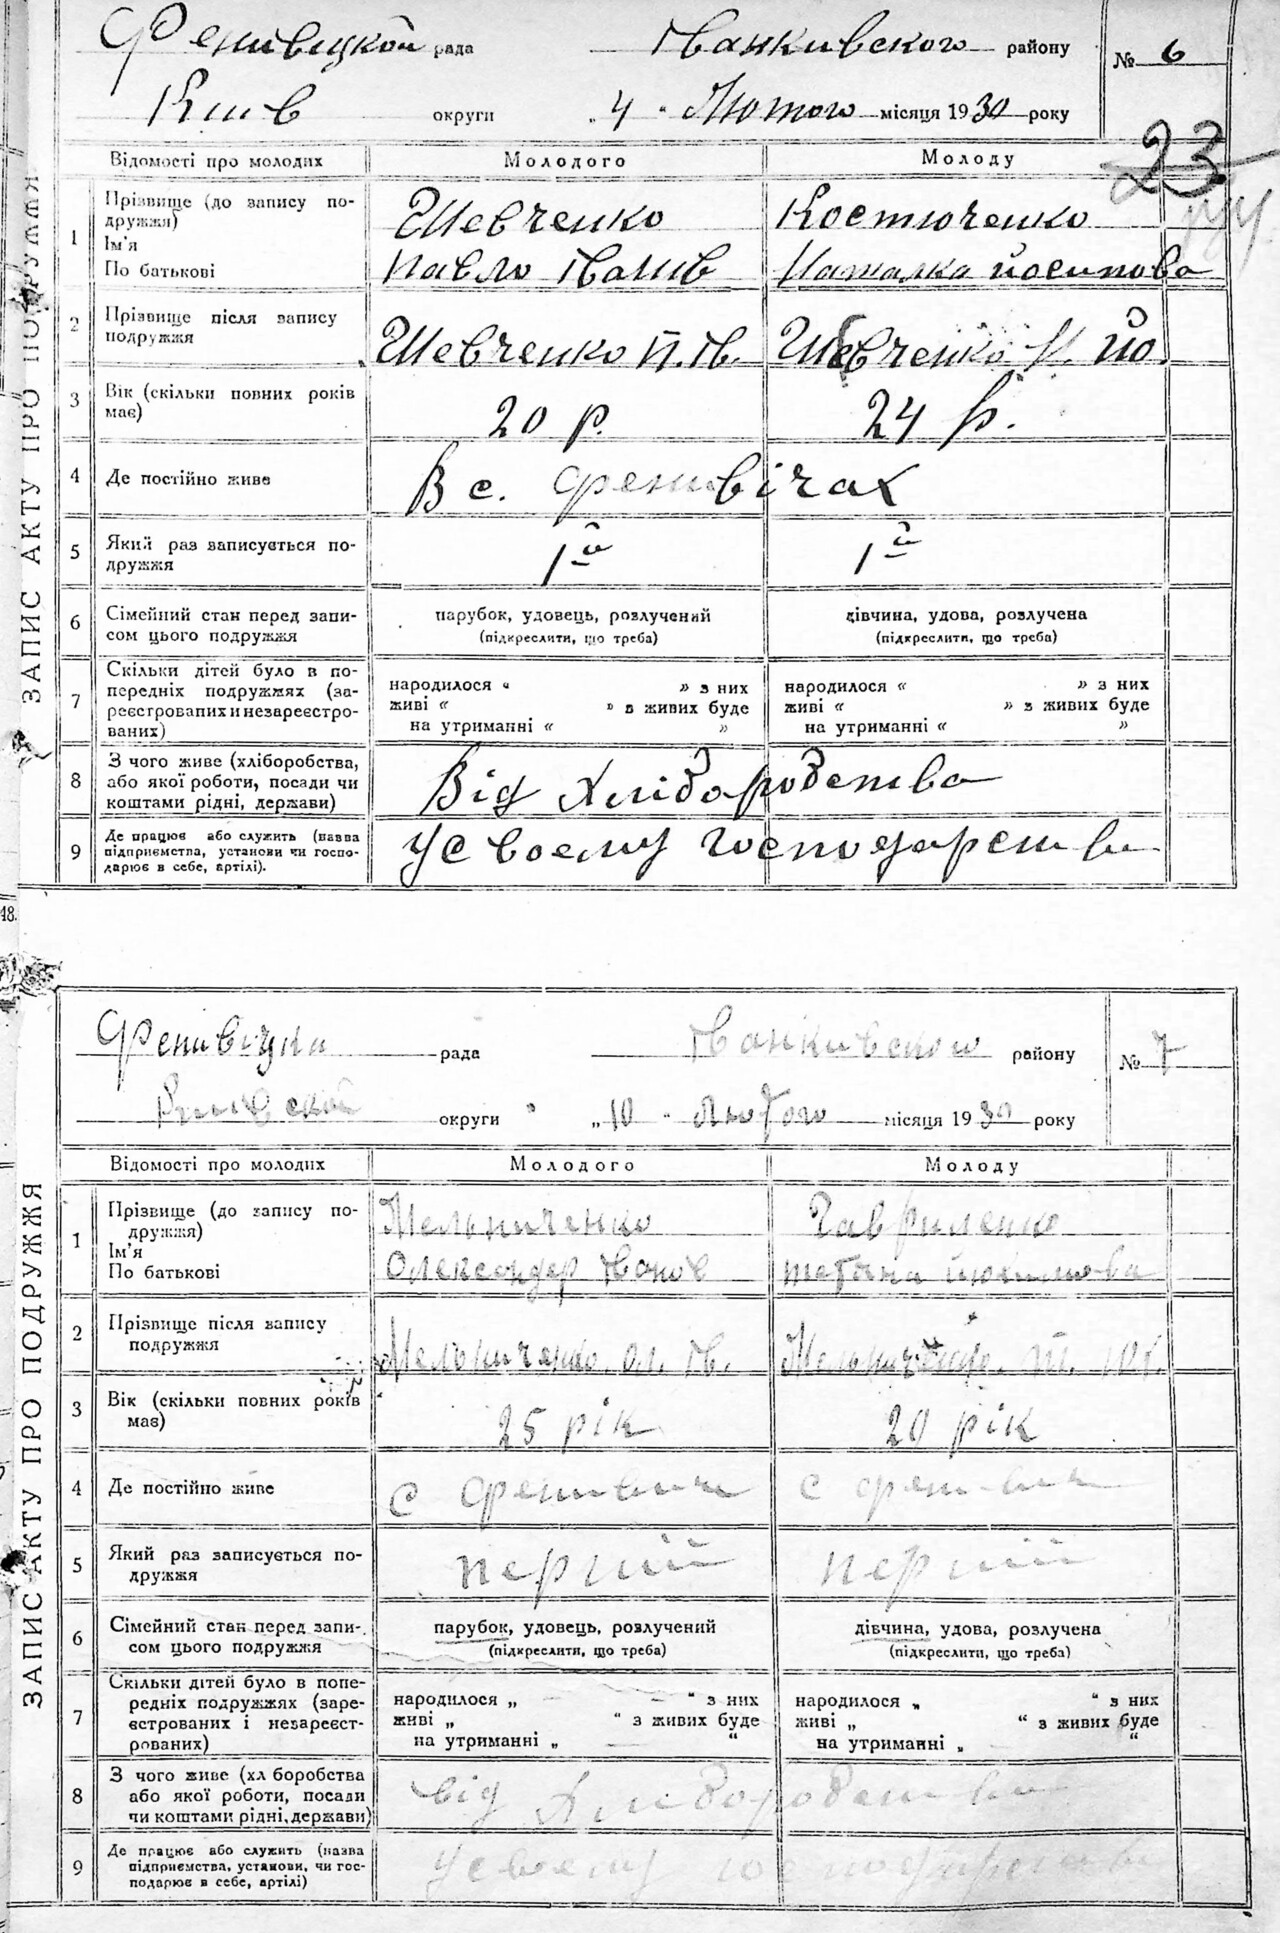 Фенивецкой рада Іванкивского району № 6
Киів округи „ 4 “ Лютого місяця 1930 року
23
ЗАПИС АКТУ ПРО ПОДРУЖЖЯ
Відомості про молодих Молодого Молоду
1 Прізвище (до запису по-
дружжя) Шевченко Костюченко
Ім'я
По батькові Павло Іванів Наталка Йосипова
2 Прізвище після запису
подружжя Шевченко П. Ів. Шевченко Н. Йо.
3 Вік (скільки повних років
має) 20 р. 24 р.
4 Де постійно живе В с. Фенивічах
5 Який раз записується по-
дружжя 1й 1й
6 Сімейний стан перед запи-
сом цього подружжя
парубок, удовець, розлучений дівчина, удова, розлучена
(підкреслити, що треба) (підкреслити, що треба)
7 Скільки дітей було в по-
передніх подружжях (за-
реєстрованих и незареєстро-
ваних)
народилося “ » з них народилося “ » з них
живі “ » в живих буде живі “ » з живих буде
на утриманні “ » на утриманні “ »
8 З чого живе (хліборобства,
або якої роботи, посади чи
коштами рідні, держави) Від Хліборобства
9 Де працює або служить (назва
підприємства, установи чи госпо-
дарює в себе, артілі). У своему господарстви
18.
Фенивіцки рада Іванкивского району № 7
округи „ 10 “ Лютого місяця 1930 року
ЗАПИС АКТУ ПРО ПОДРУЖЖЯ
Відомості про молодих Молодого Молоду
1 Прізвище (до запису по-
дружжя) Мельниченко Гавриленко
Ім'я
По батькові Олександер Іванов Тетяна
2 Прізвище після запису
подружжя Мельниченко. Ол. Ів. Мельниченко.
3 Вік (скільки повних років
має) 25 рік 20 рік
4 Де постійно живе с Фенивичи с
5 Який раз записується по-
дружжя перший перший
6 Сімейний стан перед запи-
сом цього подружжя
парубок, удовець, розлучений дівчина, удова, розлучена
(підкреслити, що треба) (підкреслити, що треба)
7 Скільки дітей було в попе-
редніх подружжях (заре-
єстрованих і незареєст-
рованих)
народилося „ “ з них народилося „ “ з них
живі „ “ з живих буде живі „ “ з живих буде
на утриманні „ “ на утриманні „ “
8 З чого живе (хл боробства
або якої роботи, посади
чи коштами рідні, держави) від Хліборобства
9 Де працює або служить (назва
підприємства, установи, чи гос-
подарює в себе, артілі) У своему господарстви